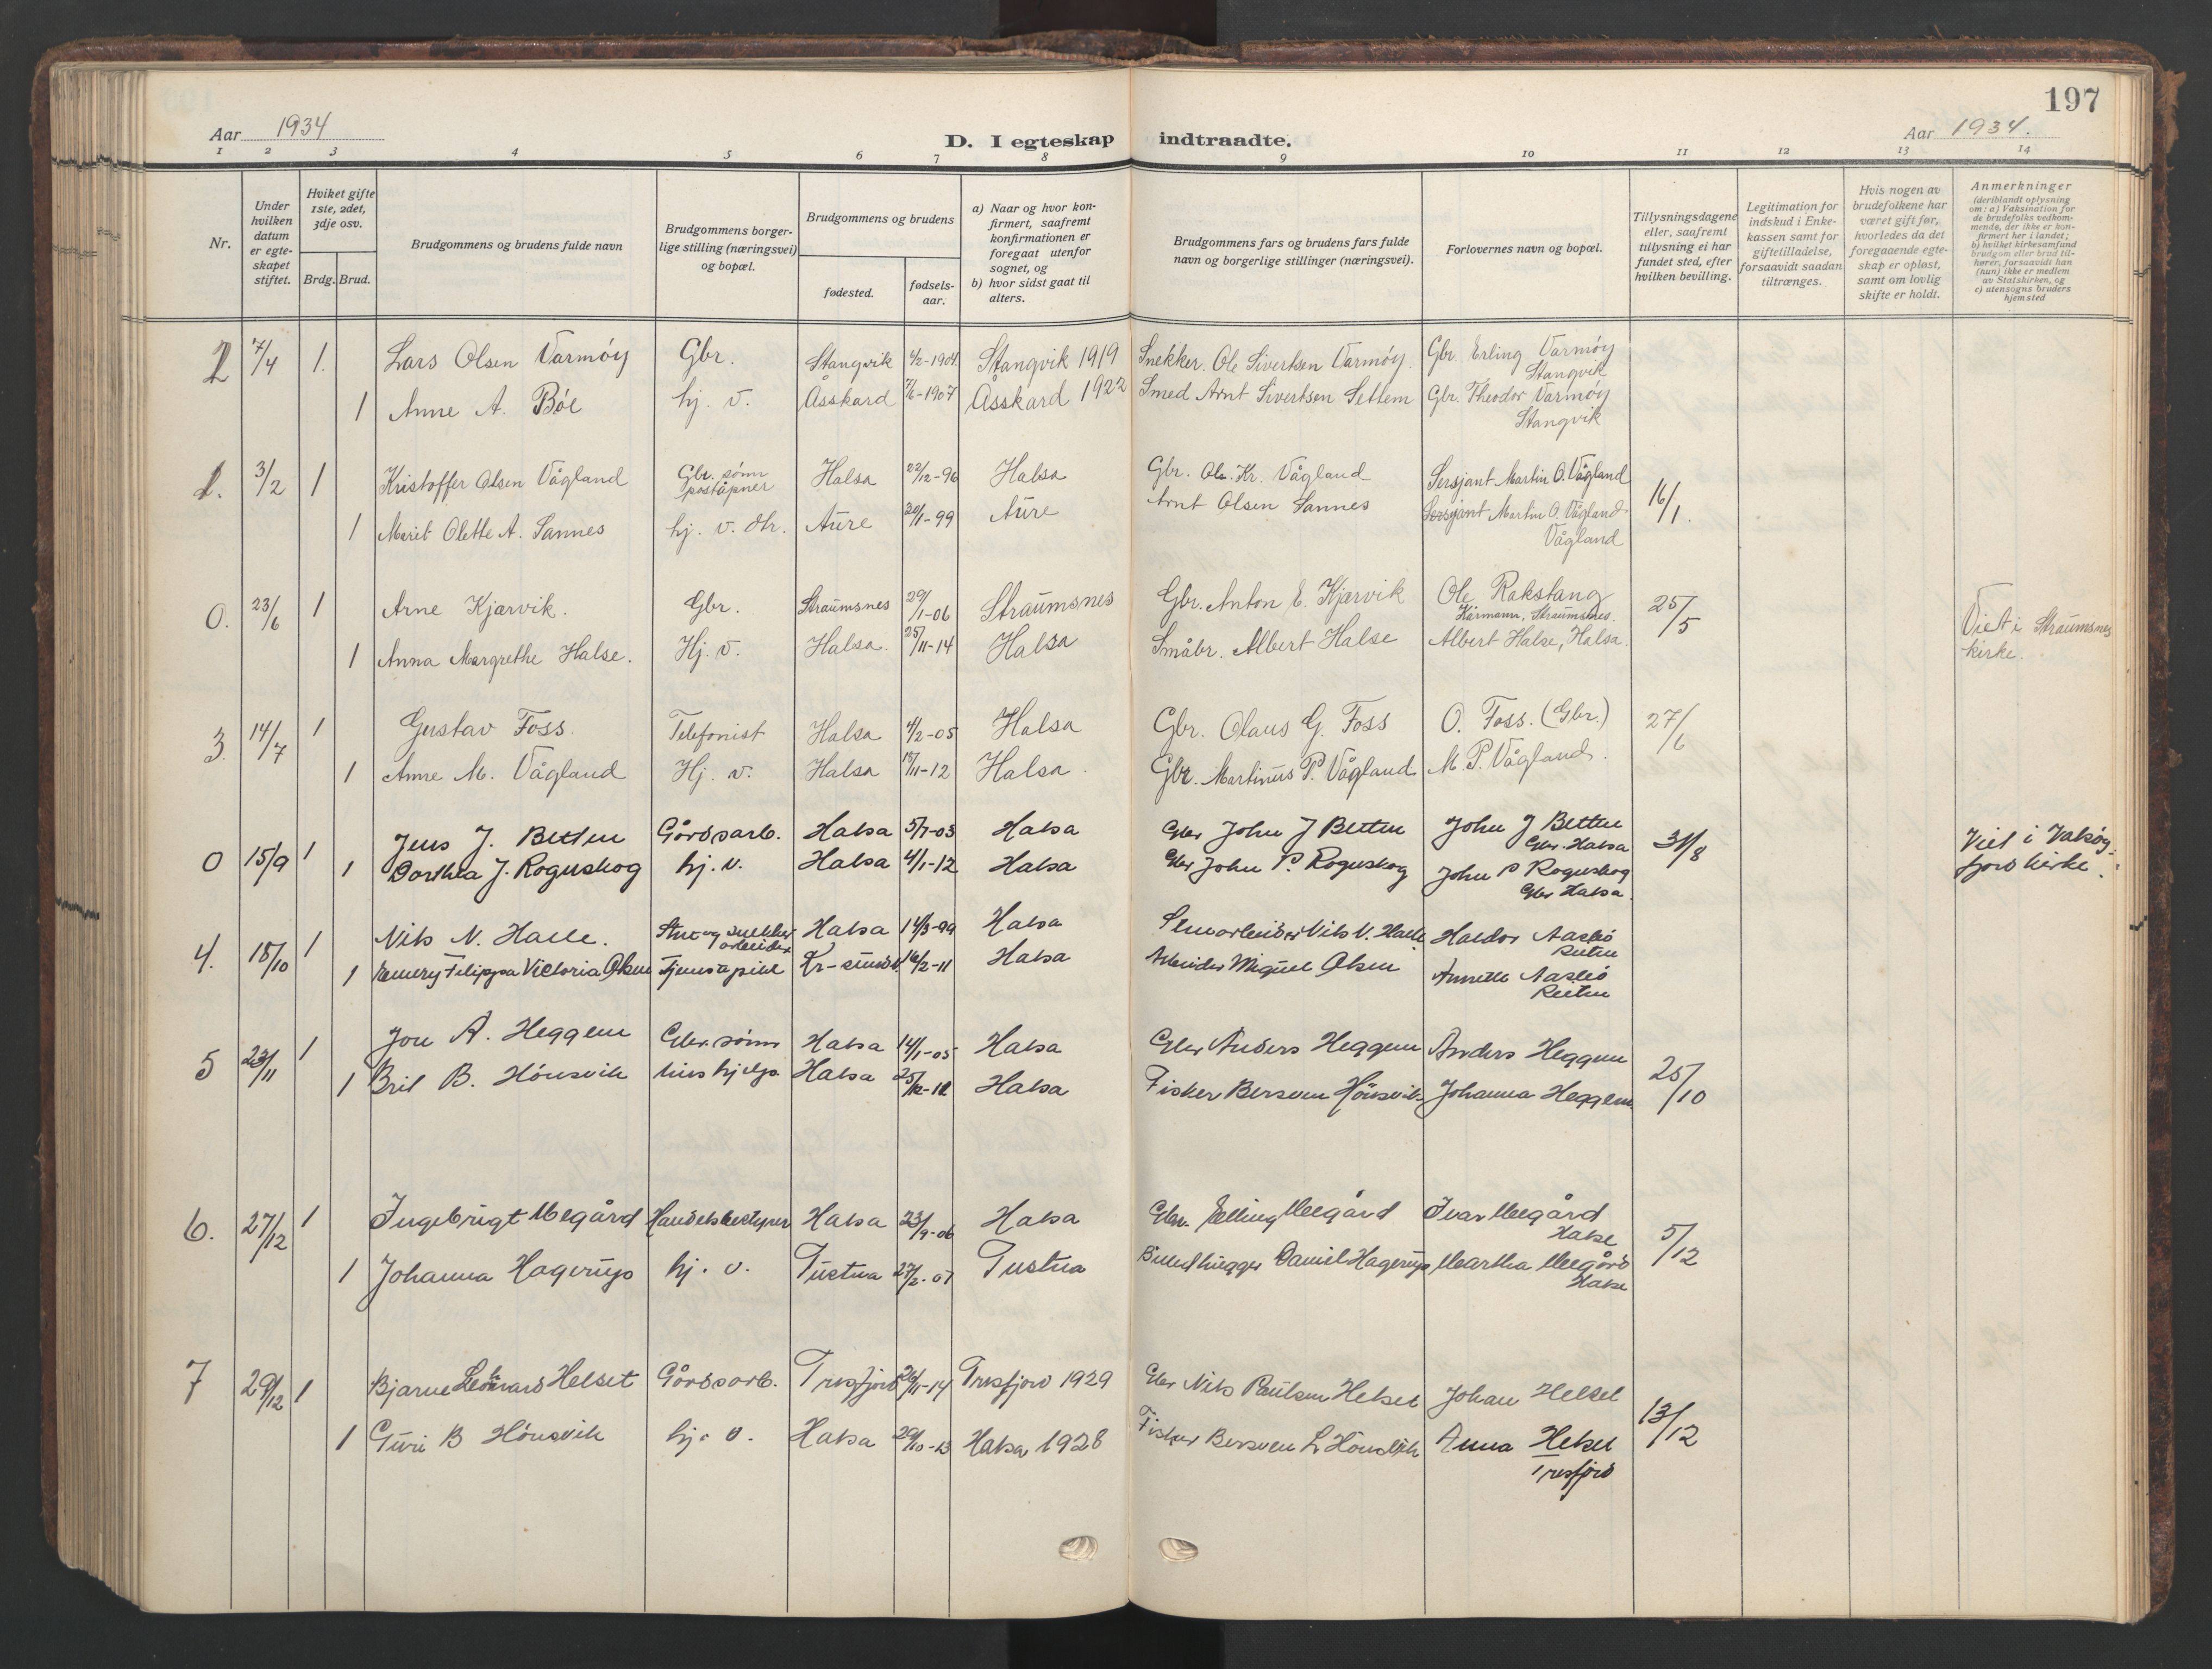 197
Aar 1934
D. I egteskap indtraadte.
Aar 1934.
1 2 3 4 5 6 7 8 9 10 11 12 13 14
Nr.
Under hvilken datum er egte-skapet stiftet.
Hviket gifte 1ste, 2det, 3dje osv.
Brdg. Brud.
Brudgommens og brudens fulde navn
Brudgommens borger-lige stilling (næringsvei) og bopæl.
Brudgommens og brudens
fødested.
fødsels-aar.
a) Naar og hvor kon-firmert, saafremt konfirmationen er foregaat utenfor sognet, og
b) hvor sidst gaat til alters.
Brudgommens fars og brudens fars fulde navn og borgerlige stillinger (næringsvei).
Forlovernes navn og bopæl.
Tillysningsdagene eller, saafremt tillysning ei har fundet sted, efter hvilken bevilling.
Legitimation for indskud i Enke-kassen samt for giftetilladelse, forsaavidt saadan tiltrænges.
Hvis nogen av brudefolkene har været gift før, hvorledes da det foregaaende egte-skap er opløst, samt om lovlig skifte er holdt.
Anmerkninger (deriblandt oplysning om: a) Vaksination for de brudefolks vedkom-mende, der ikke er kon-firmert her i landet; b) hvilket kirkesamfund brudgom eller brud til-hører, forsaavidt han (hun) ikke er medlem av Statskirken, og c) utensogns bruders hjemsted
2 7/4 1. Lars Olsen Varmøy Gbr. Stangvik 4/2-1904 Stangvik 1919 Snekker. Ole Sivertsen Varmøy. Gbr. Erling Varmøy Stangvik
1 Anne A. Bøe hj. v. Åsskard 7/6-1907 Åsskard 1922 Smed Arnt Sivertsen Settem Gbr. Theodor Varmøy Stangvik
1. 3/2 1 Kristoffer Olsen Vågland Gbr. sønn poståpner Halsa 22/12-96 Halsa Gbr. Ole Kr. Vågland Sersjant Martin O. Vågland 16/1.
1 Marit Olette A. Sannes hj. v. dtr. Aure 20/1-99 Aure Arnt Olsen Sannes Sersjant Martin O. Vågland Vågland
0. 23/6 1 Arne Kjørvik. Gbr. Straumsnes 29/1-06 Straumsnes Gbr. Anton E. Kjørvik Ole Rakstang Kårmann, Straumsnes. 25/5 Viet i Straumsnes kirke.
1 Anna Margrethe Halse. Hj. v. Halsa. 25/11-14 Halsa Småbr. Albert Halse Albert Halse, Halsa.
3. 14/7 1 Gustav Foss. Telefonist Halsa 4/2-05 Halsa Gbr. Olaus G. Foss O. Foss. (Gbr.) 27/6
1 Anne M. Vågland Hj. v. Halsa /11-12 Halsa. Gbr. Martinus P. Vågland M. P. Vågland.
0 15/9 1 Jens J. Betten Gårdsarb. Halsa 5/7-03 Halsa Gbr John J Betten John J Betten Gbr. Halsa 31/8 Viet i Valsøy-fjord kirke.
1 Dorthea J. Roguskog hj. v. Halsa 4/1-12 Halsa Gbr John P. Roguskog John P Roguskog Gbr Halsa.
4. 18/10 1 Nils N. Halle. snekker arbeider Halsa 14/3-99 Halsa Nils N. Halle Haldor Aasbø
1 Emery Filippa Victoria Olsen Tjenestepike Kr-sund N. 16/2-11 Halsa Arbeider Miguel Olsen Annette Aasbø
5 23/11 1 Jon A. Heggem Gbr. sønn Halsa 14/1-05 Halsa Gbr Anders Heggem Anders Heggem 25/10
1 Brit B. Hønsvik hushjelp Halsa 25/12-12 Halsa Fisker Bersven Hønsvik Johanna Heggem
6. 27/12 1 Ingebrigt Megård Handelsbestyrer Halsa 23/9-06 Halsa Gbr. Elling Megård Ivar Megård Halse 5/12
1 Johanna Hagerup hj. v. Tustna 27/2-07 Tustna Billedhugger Daniel Hagerup Martha Megård Halse
7 29/12 1 Bjarne Leonhard Helset Gårdsarb. Tresfjord 26/11-14 Tresfjord 1929 Gbr Nils Paulsen Helset Johan Helset 13/12
1 Guri B Hønsvik hj. v. Halsa 20/10-13 Halsa 1928 Fisker Bersven L Hønsvik Anna Helset Tresfjord